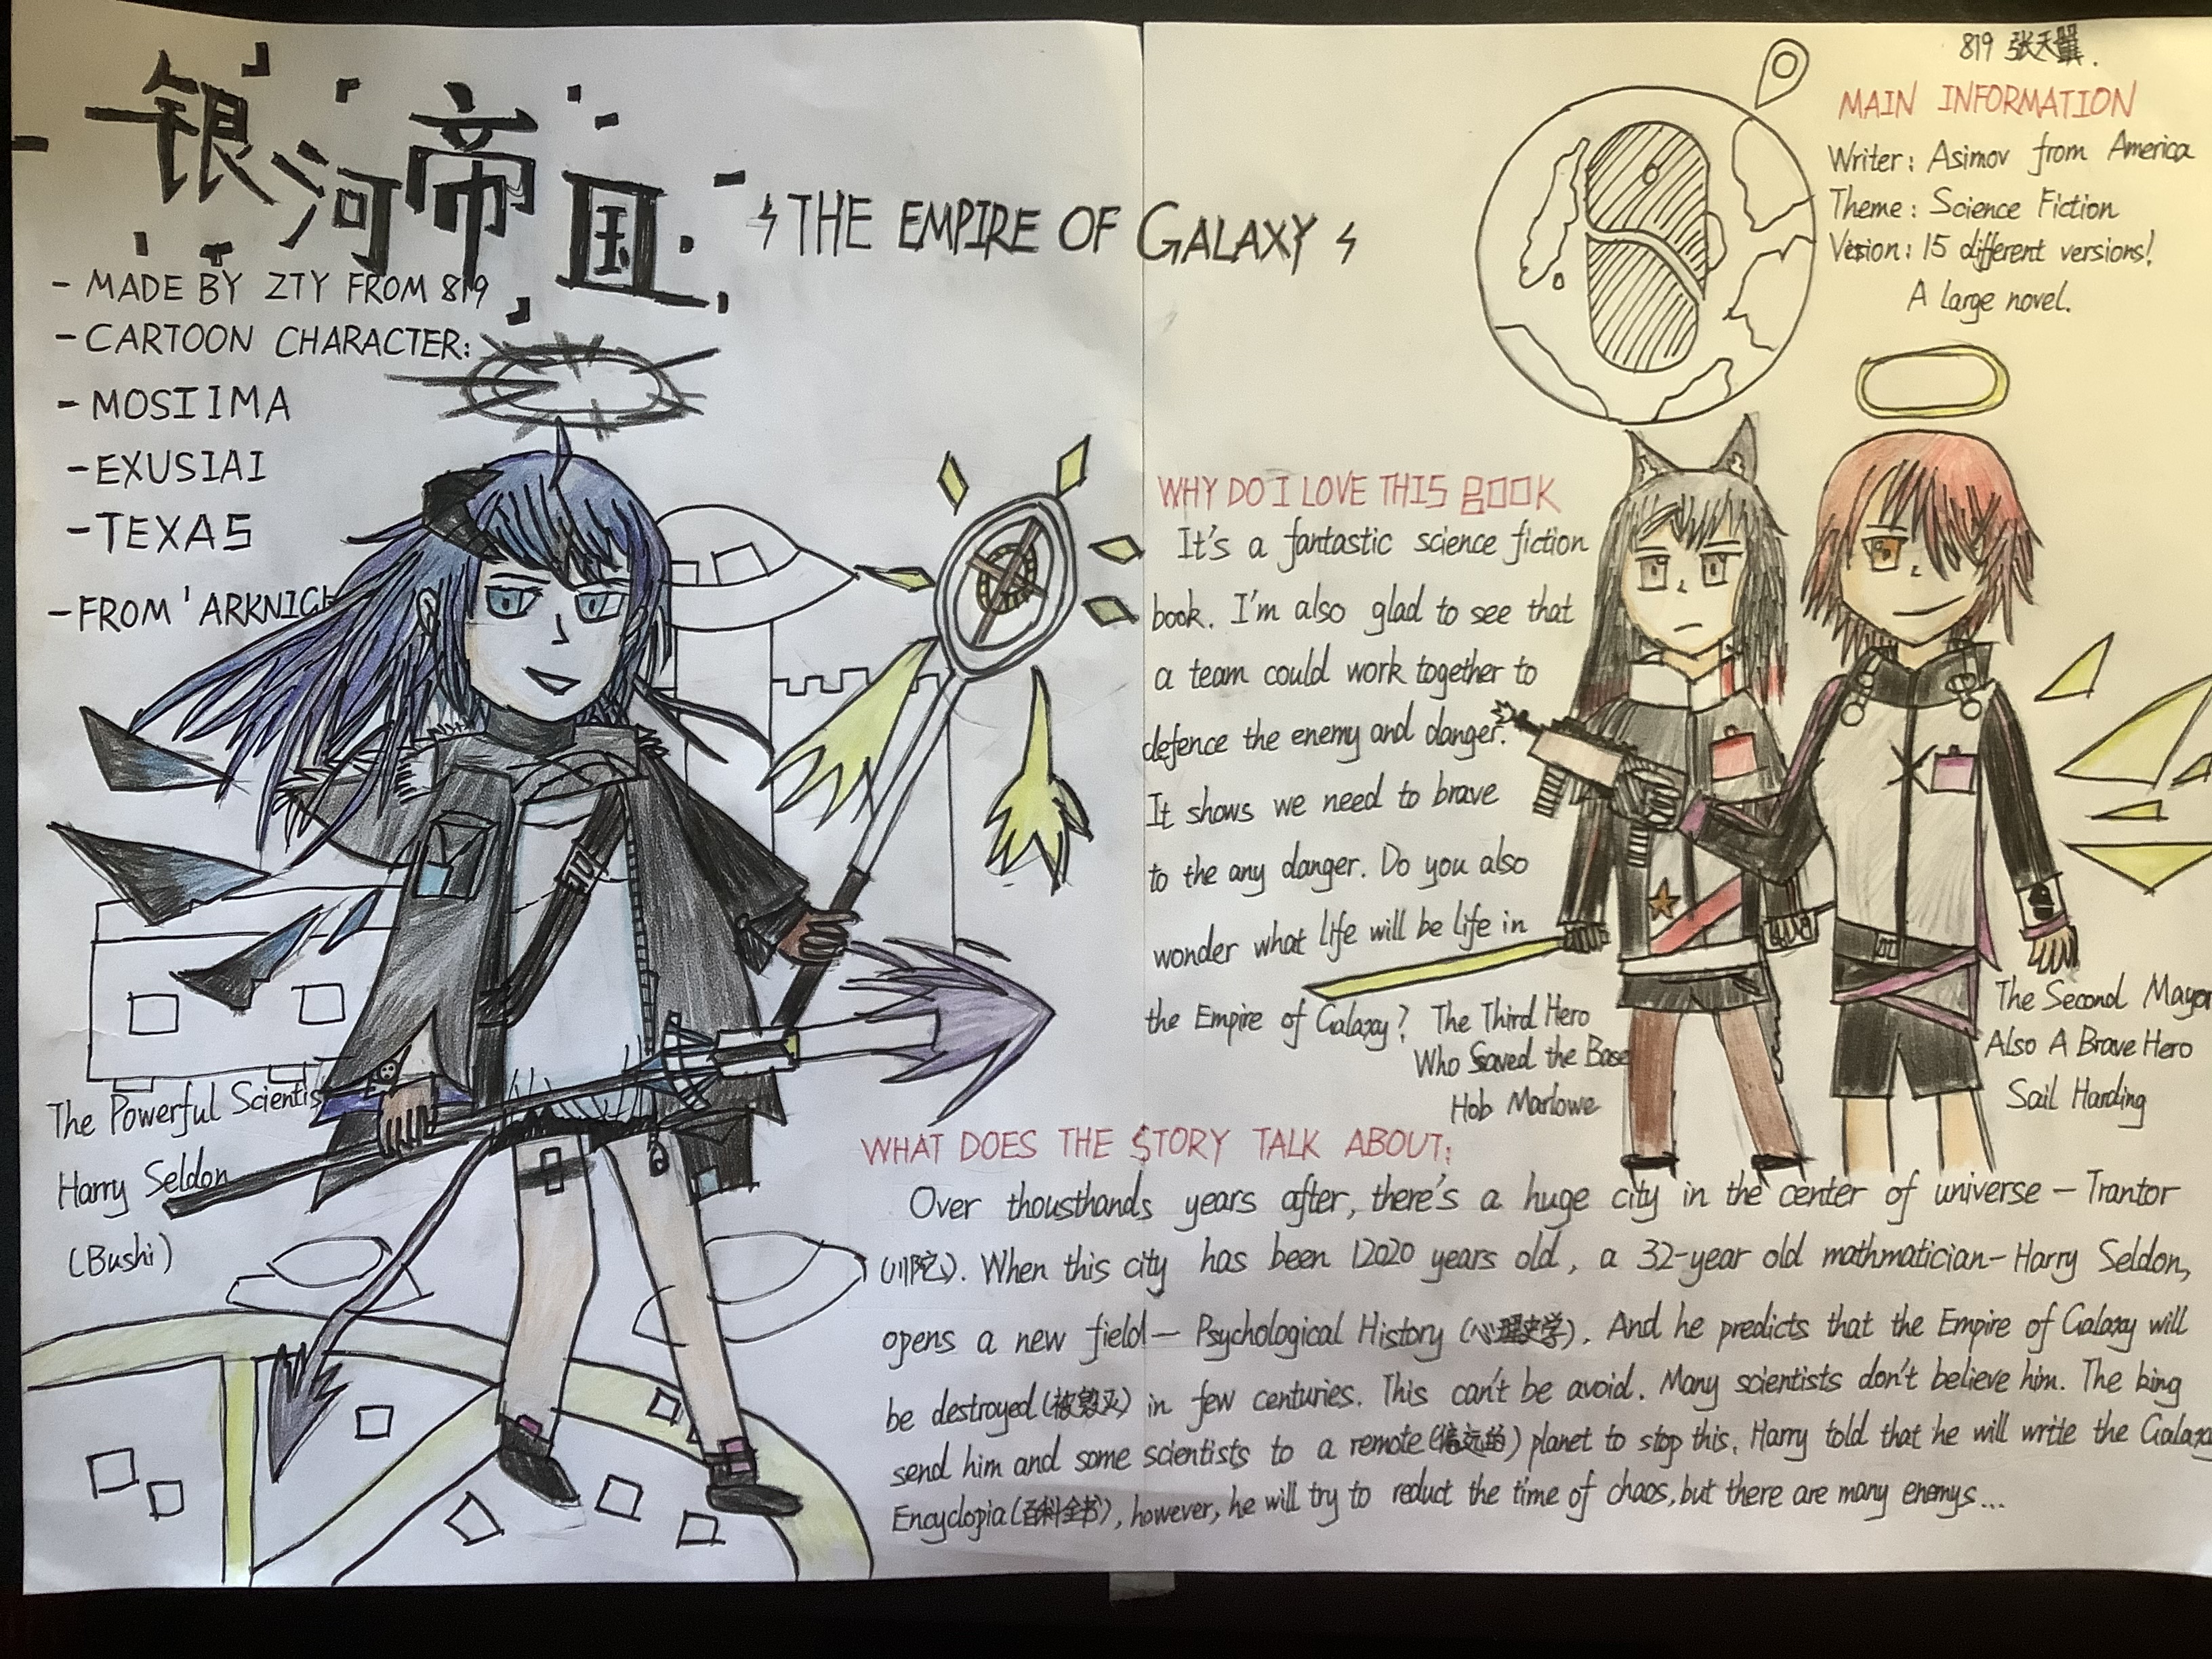 银河帝国
⚡THE EMPIRE OF GALAXY⚡
- MADE BY ZTY FROM 819
- CARTOON CHARACTER:
- MOSTIMA
- EXUSIAI
- TEXAS
- FROM 'ARKNIGH
819 张天翼.
MAIN INFORMATION
Writer: Asimov from America
Theme: Science Fiction
Vesion: 15 different versions!
A large novel.
WHY DO I LOVE THIS BOOK
It's a fantastic science fiction
book. I'm also glad to see that
a team could work together to
defence the enemy and danger.
It shows we need to brave
to the any danger. Do you also
wonder what life will be life in
the Empire of Galaxy?
The Third Hero
Who Saved the Base
Hob Marlowe
The Second Mayor
Also A Brave Hero
Sail Harding
The Powerful Scientis
Harry Seldon
(Bushi)
WHAT DOES THE STORY TALK ABOUT:
Over thousthands years after, there's a huge city in the center of universe — Trantor
(川陀). When this city has been 12020 years old, a 32-year old mathmatician- Harry Seldon,
opens a new field— Psychological History (心理史学). And he predicts that the Empire of Galaxy will
be destroyed (被毁灭) in few centuries. This can't be avoid. Many scientists don't believe him. The king
send him and some scientists to a remote (偏远的) planet to stop this. Harry told that he will write the Galaxy
Encyclopia (百科全书), however, he will try to reduct the time of chaos, but there are many enemys...